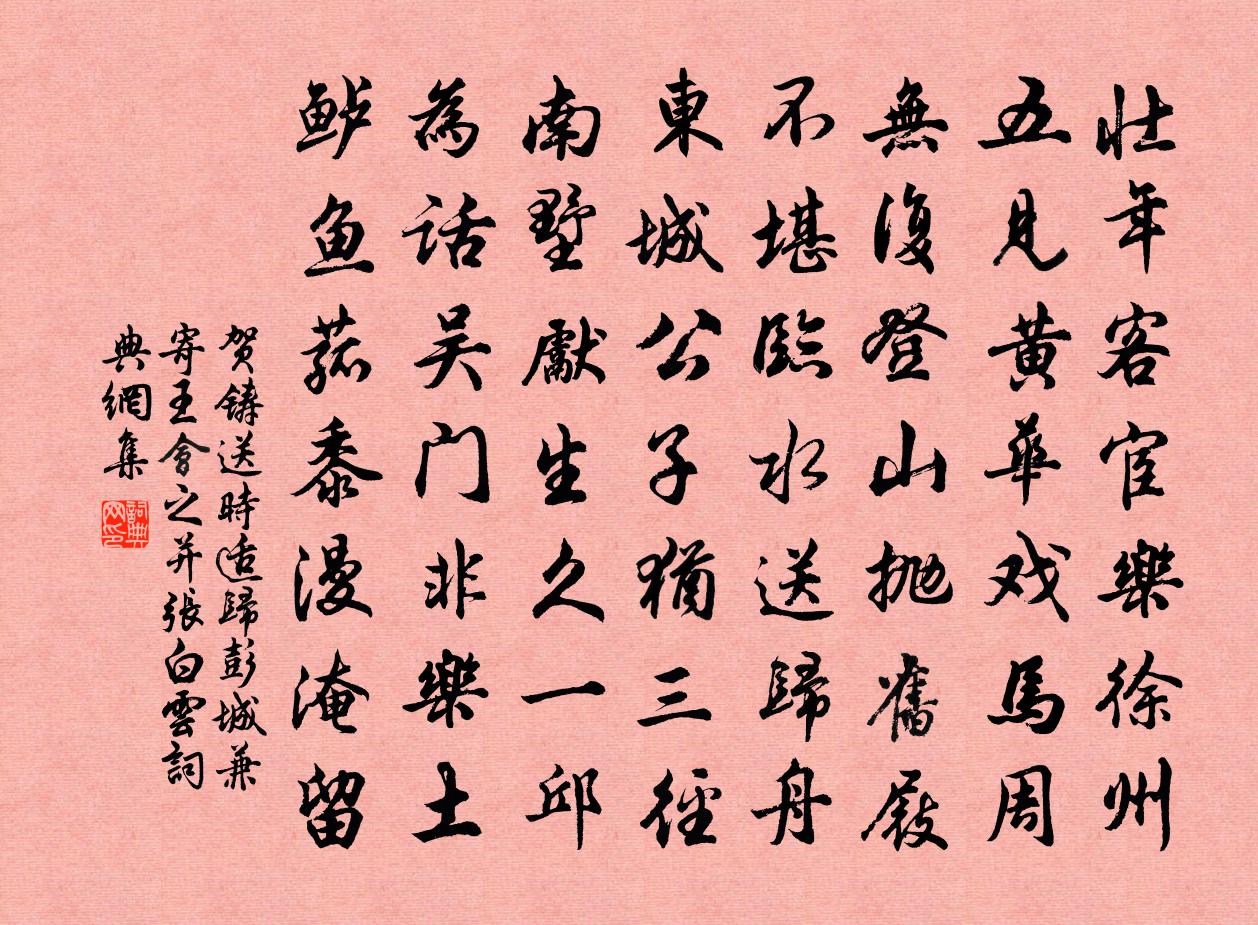 壮年客宦樂徐州
五見黄華戏馬周
無復登山抛舊屐
不堪臨水送歸舟
東城公子猶三徑
南墅獻生久一邱
為話吴门非樂土
鲈鱼菰黍漫淹留
贺铸送時适歸彭城兼
寄王會之并張白雲詞
典網集
詞典网印